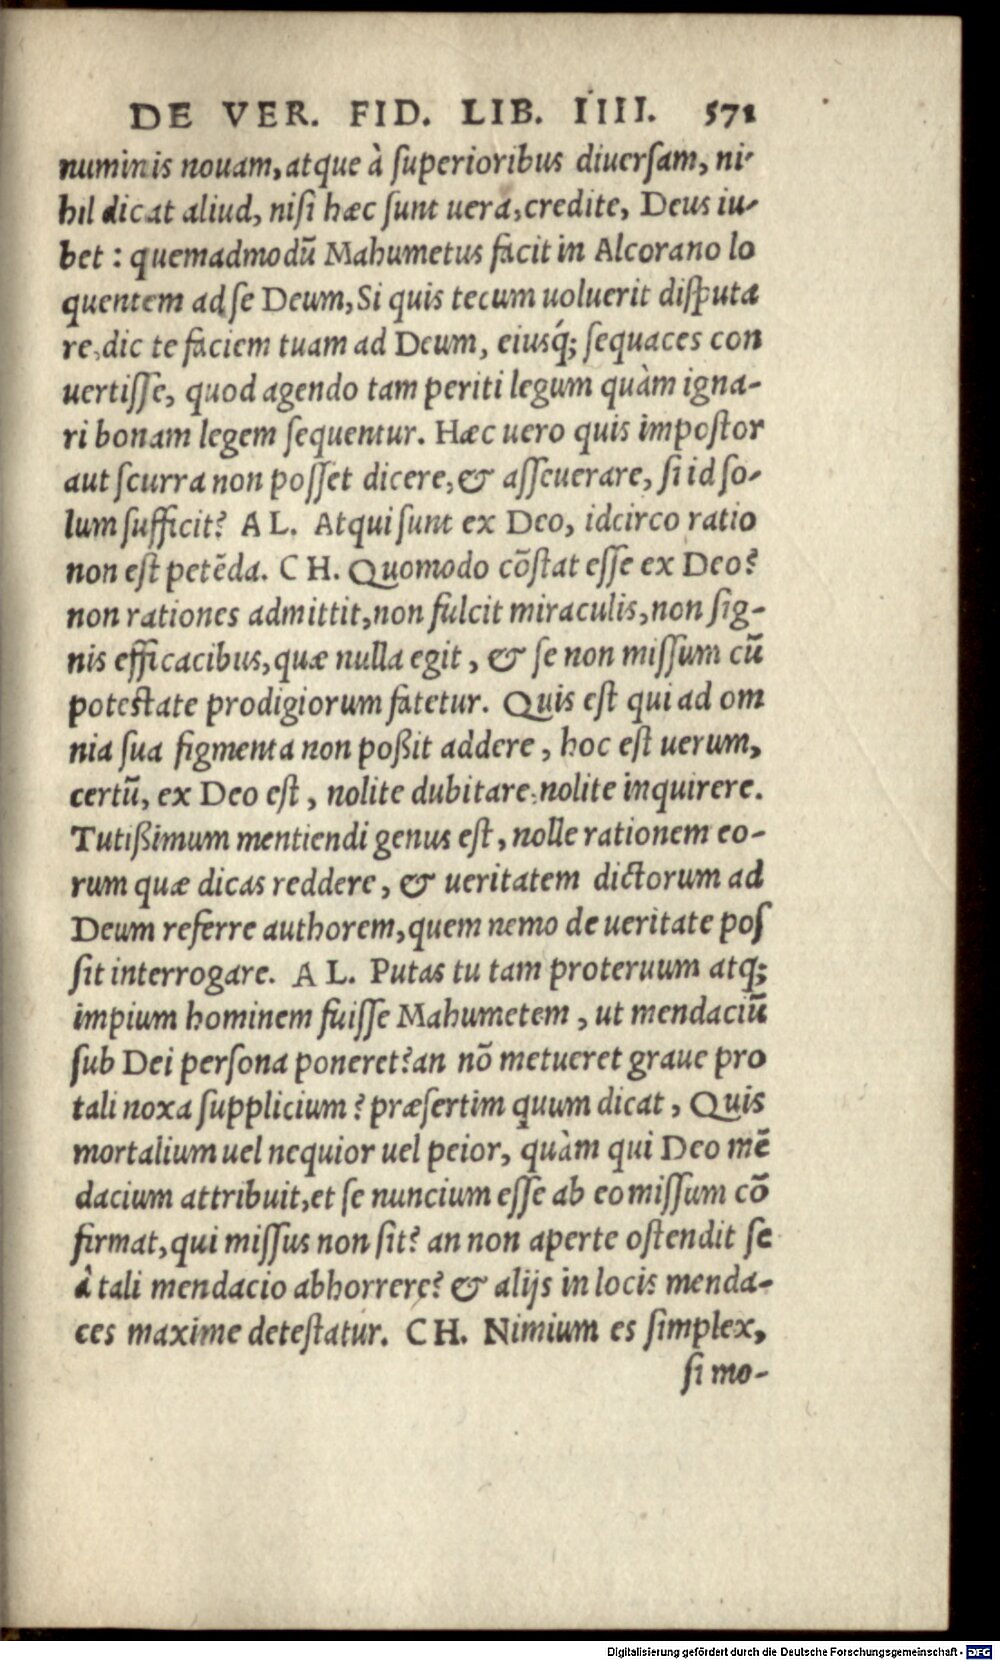 DE VER. FID. LIB. IIII. 571
numinis nouam, atque à ſuperioribus diuerſam, ni-
hil dicat aliud, niſi hæc ſunt uera, credite, Deus iu-
bet : quemadmodū Mahumetus facit in Alcorano lo
quentem ad ſe Deum, Si quis tecum uoluerit diſputa
re, dic te faciem tuam ad Deum, eiusq́; ſequaces con
uertiſſe, quod agendo tam periti legum quàm igna-
ri bonam legem ſequentur. Hæc uero quis impoſtor
aut ſcurra non poſſet dicere, & aſſeuerare, ſi id ſo-
lum ſufficit? AL. Atqui ſunt ex Deo, idcirco ratio
non eſt petēda. CH. Quomodo cōſtat eſſe ex Deo?
non rationes admittit, non fulcit miraculis, non ſig-
nis efficacibus, quæ nulla egit, & ſe non miſſum cū
poteſtate prodigiorum fatetur. Quis eſt qui ad om
nia ſua figmenta non poßit addere, hoc eſt uerum,
certū, ex Deo eſt, nolite dubitare, nolite inquirere.
Tutißimum mentiendi genus eſt, nolle rationem eo-
rum quæ dicas reddere, & ueritatem dictorum ad
Deum referre authorem, quem nemo de ueritate poſ
ſit interrogare. AL. Putas tu tam proteruum atq;
impium hominem fuiſſe Mahumetem, ut mendaciū
ſub Dei perſona poneret? an nō metueret graue pro
tali noxa ſupplicium? præſertim quum dicat, Quis
mortalium uel nequior uel peior, quàm qui Deo mē
dacium attribuit, et ſe nuncium eſſe ab eo miſſum cō
firmat, qui miſſus non ſit? an non aperte oſtendit ſe
à tali mendacio abhorrere? & alijs in locis menda-
ces maxime deteſtatur. CH. Nimium es ſimplex,
ſi mo-
Digitalisierung gefördert durch die Deutsche Forschungsgemeinschaft - DFG